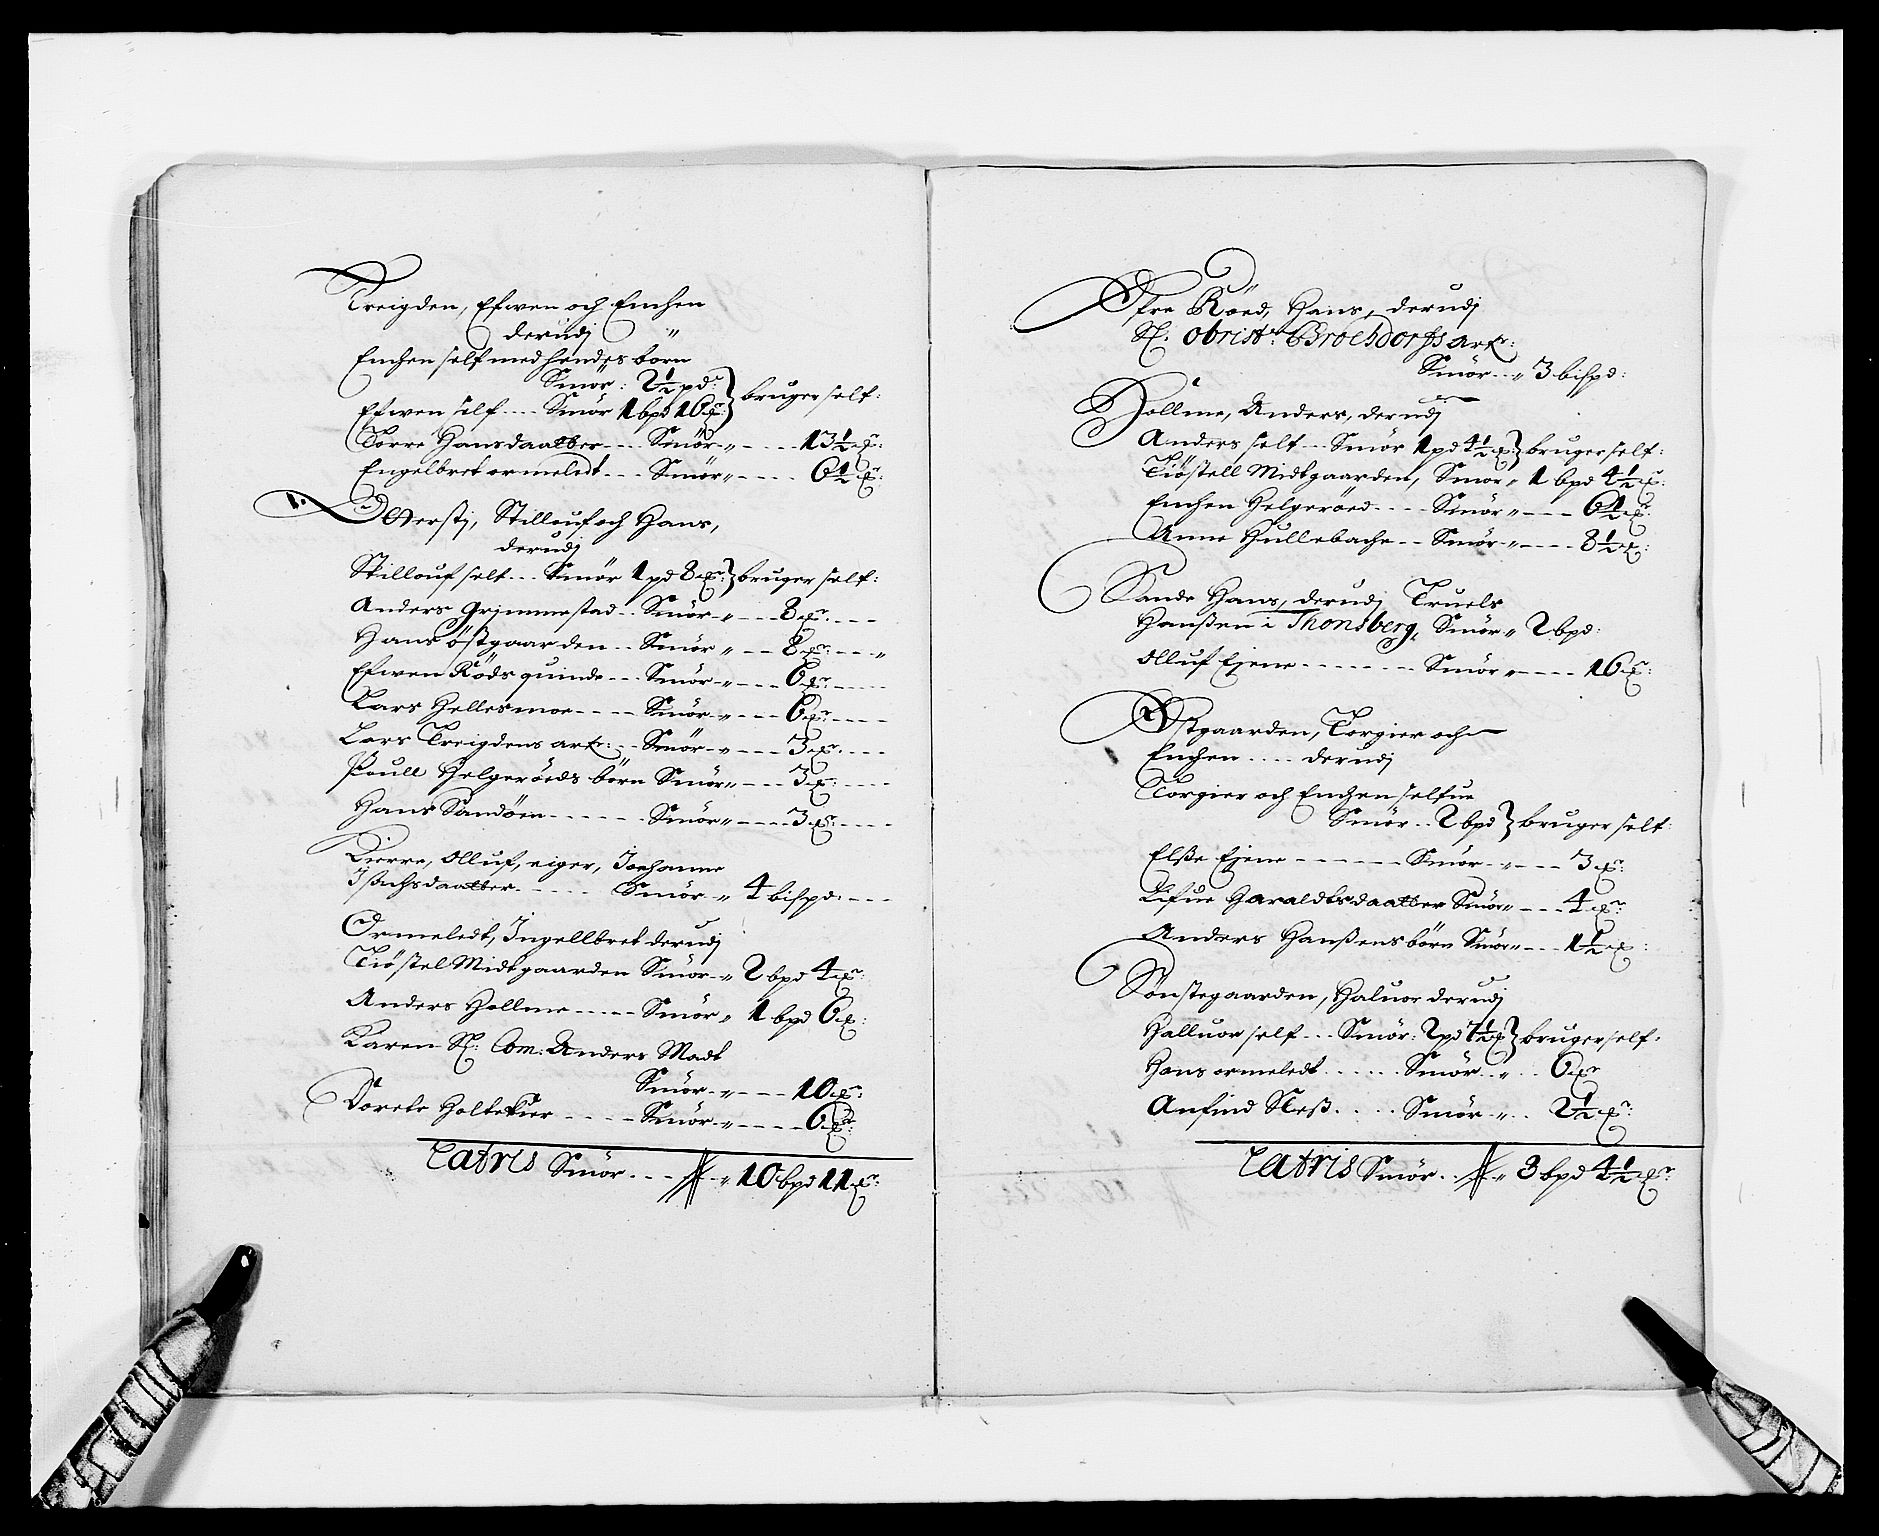 Treigden, Efwen och Enchen
derudj "
Enchen self med hendes born
Smør: 2½ pd: } bruger self:
Efwen self .... Smør 1 bpd 10 ℔:
Torre Hansdaatter ... Smør " .... 13½ ℔:
Engelbret ormeledt ... Smør " .... 6½ ℔:
1. Ofverstj, Stillouf och Hans,
derudj
Stillouf self ... Smør 1 pd 8 ℔: } bruger self:
Anders Grimmestad .. Smør " ... 8 ℔: ...
Hans östgaarden .. Smør " ... 8 ℔: ... "
Efwen Röds quinde ... Smør " ... 6 ℔: ....
Lars Hellesmoe .... Smør " ... 6 ℔: ....
Lars Treigdens arf: .. Smør " ... 3 ℔: ....
Poull Helgeröeds börn Smør " ... 3 ℔: ....
Hans Sandöen ...... Smør " .... 3 ℔: ....
Kierre, Olluf, eiger, Johanne
Isachsdaatter ..... Smør " 4 bispd: ...
Ormeledt, Ingellbret derudj
Tiöstel Midtgaarden Smør " 2 bpd 4 ℔:
Anders Hollme ..... Smør " 1 bpd 6 ℔:
Karen Sl: Com: Anders Madt
Smør " ... 10 ℔:
Dorete Holtekier .... Smør " .... 6 ℔:
Latris Smør ... " 10 bpd 11 ℔:
Öfre Röed, Hans, derudj
Sl: Obrist: Brochdorfs arf:
Smør .. " 3 bispd:
Hollme, Anders, derudj
Anders self ... Smør 1 pd 4½ ℔: } bruger self:
Tiöstell Midtgaarden, Smør " 1 bpd 4½ ℔:
Enchen Helgeröed .... Smør " ... 6½ ℔:
Anne Hullebache .. Smør " .... 8½ ℔:
Sande Hans, derudj Truels
Hanßen i Thonsberg, Smør " 2 bpd:
Olluf Eiene ........ Smør " .... 16 ℔:
Östgaarden, Torgier och
Enchen .... derudj
Torgier och Enchen selfue
Smør .. 2 bpd } bruger self:
Elße Eiene ...... Smør " ... 3 ℔:
Lifue Haraldtsdaatter Smør " ... 4 ℔:
Anders Hanßens börn Smør " ... 1½ ℔:
Sönstegaarden, Haluor derudj
Halluor self ... Smør: 2 pd 7½ ℔ } bruger self:
Hans ormeledt ...... Smør .. " .. 6 ℔:
Anfind Neß ..... Smør " .. 2½ ℔:
Latris Smør .. " 8 bpd 4½ ℔: